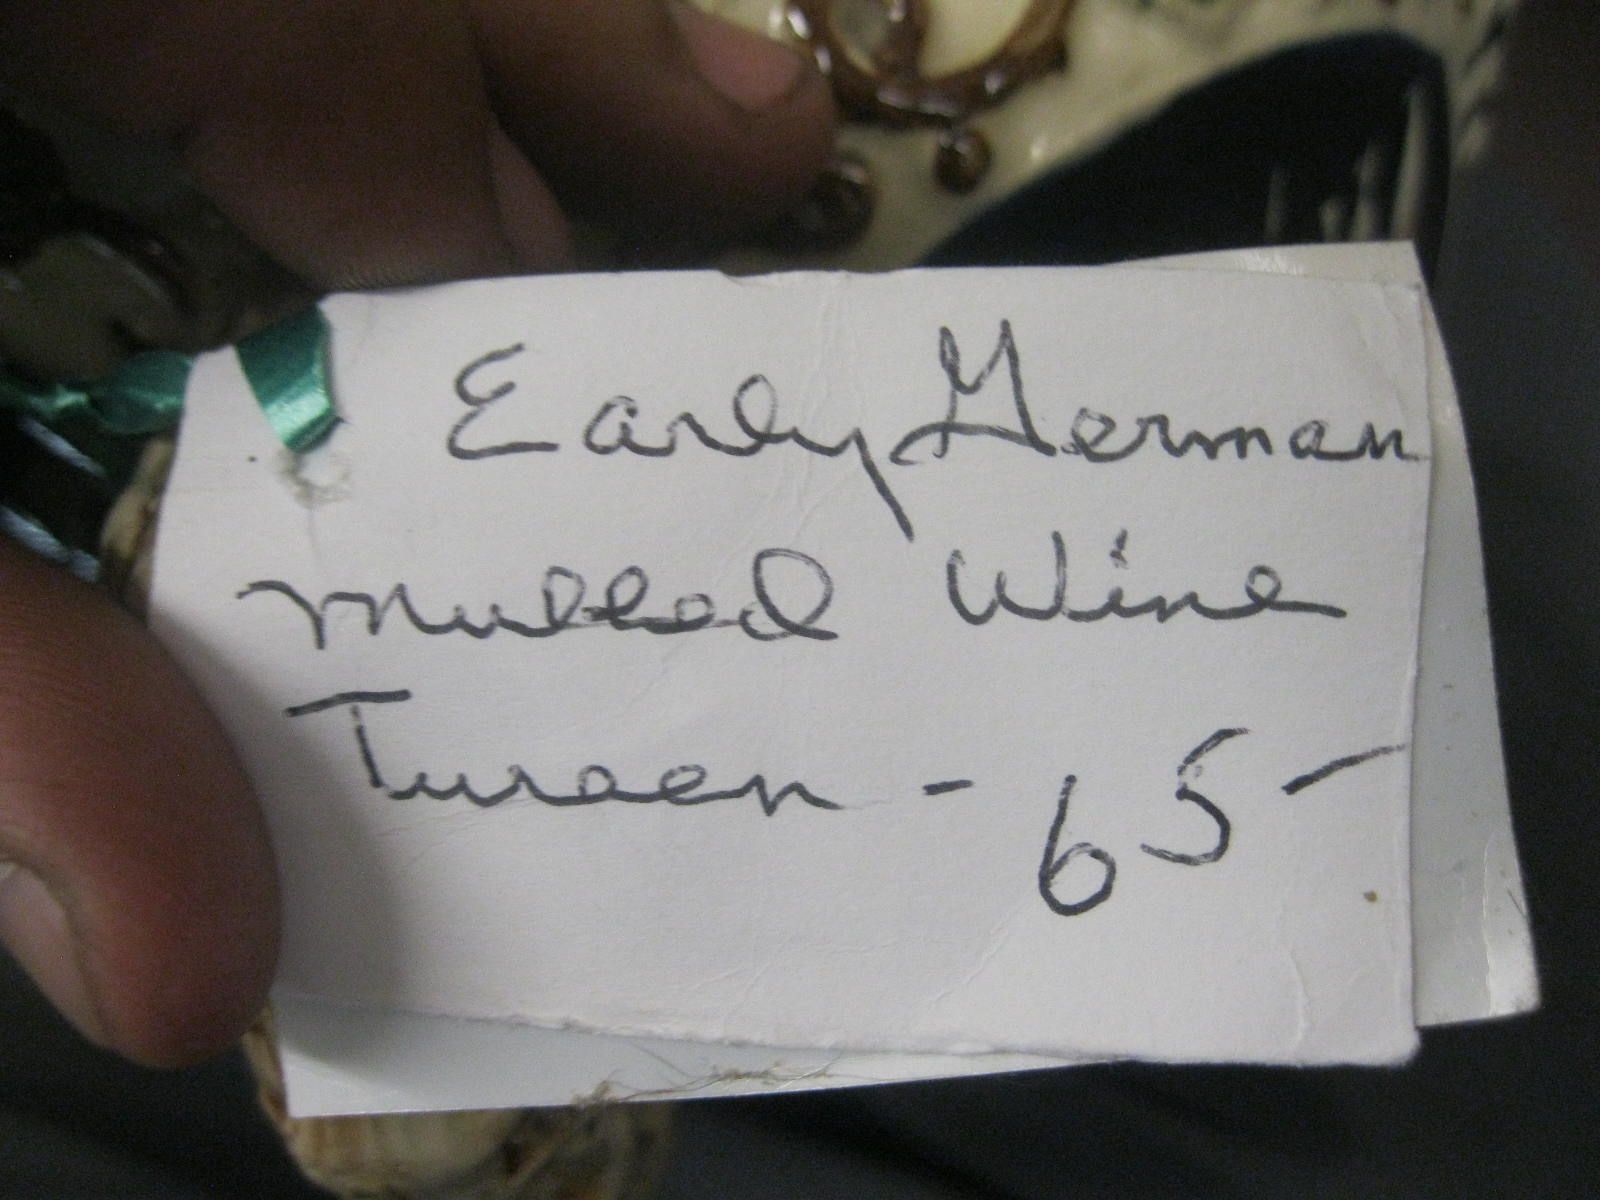 Early German
Mulled Wine
Tureen - 65-